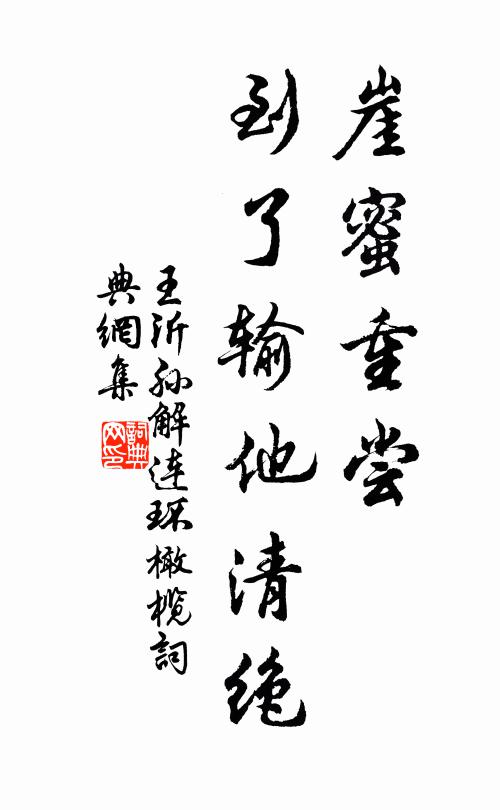 崖蜜重尝
到了输他清绝
王沂孙解连环橄榄詞
典網集
詞典網印